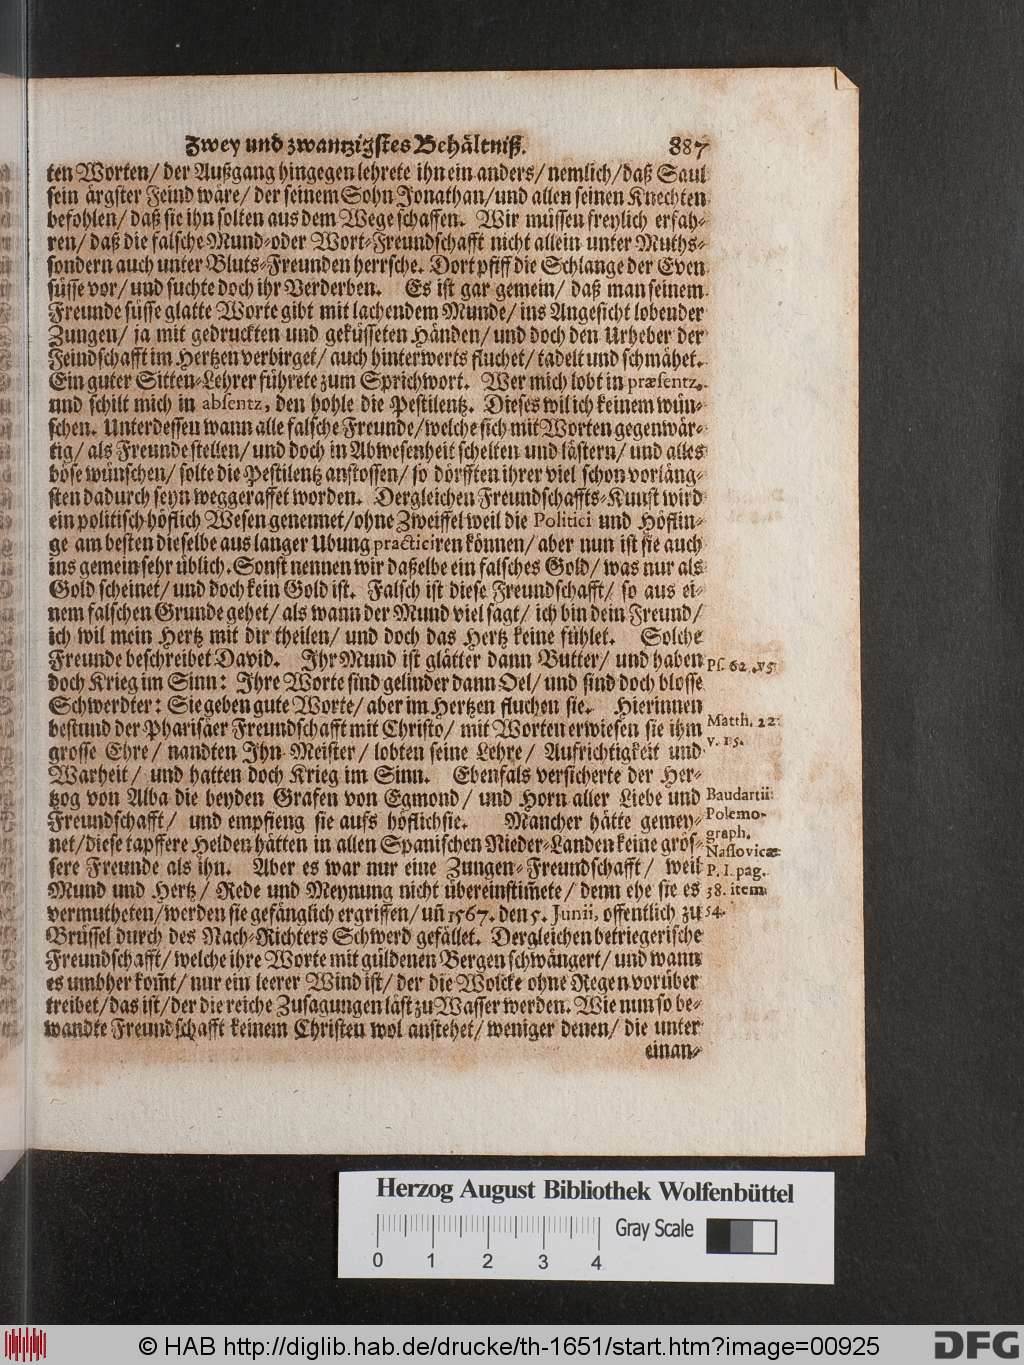 Zwey und zwantzigstes Behältniß. 887
ten Worten/ der Außgang hingegen lehrete ihn ein anders/ nemlich/ daß Saul
sein ärgster Feind wäre/ der seinem Sohn Jonathan/ und allen seinen Knechten
befohlen/ daß sie ihn solten aus dem Wege schaffen. Wir müssen freylich erfah-
ren/ daß die falsche Mund-oder Wort-Freundschafft nicht allein unter Muths-
sondern auch unter Bluts-Freunden herrsche. Dort pfiff die Schlange der Even
süsse vor/ und suchte doch ihr Verderben. Es ist gar gemein/ daß man seinem
Freunde süsse glatte Worte gibt mit lachendem Munde/ ins Angesicht lobender
Zungen/ ja mit gedruckten und geküsseten Händen/ und doch den Urheber der
Feindschafft im Hertzen verbirget/ auch hinterwerts fluchet/ tadelt und schmähet.
Ein guter Sitten-Lehrer führete zum Sprichwort. Wer mich lobt in præsentz,
und schilt mich in absentz, den hohle die Pestilentz. Dieses wil ich keinem wün-
schen. Unterdessen wann alle falsche Freunde/ welche sich mit Worten gegenwär-
tig/ als Freunde stellen/ und doch in Abwesenheit schelten und lästern/ und alles
böse wünschen/ solte die Pestilentz anstossen/ so dörfften ihrer viel schon vorläng-
sten dadurch seyn weggeraffet worden. Dergleichen Freundschaffts-Kunst wird
ein politisch höflich Wesen genennet/ ohne Zweiffel weil die Politici und Höflin-
ge am besten dieselbe aus langer Ubung practiciren können/ aber nun ist sie auch
ins gemein sehr üblich. Sonst nennen wir daßelbe ein falsches Gold/ was nur als
Gold scheinet/ und doch kein Gold ist. Falsch ist diese Freundschafft/ so aus ei-
nem falschen Grunde gehet/ als wann der Mund viel sagt/ ich bin dein Freund/
ich wil mein Hertz mit dir theilen/ und doch das Hertz keine fühlet. Solche
Freunde beschreibet David. Ihr Mund ist glätter dann Butter/ und haben
doch Krieg im Sinn: Ihre Worte sind gelinder dann Oel/ und sind doch blosse
Schwerdter: Sie geben gute Worte/ aber im Hertzen fluchen sie. Hierinnen
bestund der Pharisäer Freundschafft mit Christo/ mit Worten erwiesen sie ihm
grosse Ehre/ nandten Ihn Meister/ lobten seine Lehre/ Aufrichtigkeit und
Warheit/ und hatten doch Krieg im Sinn. Ebenfals versicherte der Her-
tzog von Alba die beyden Grafen von Egmond/ und Horn aller Liebe und
Freundschafft/ und empfieng sie aufs höflichsie. Mancher hätte gemey-
net/ diese tapffere Helden hätten in allen Spanischen Nieder-Landen keine grös-
sere Freunde als ihn. Aber es war nur eine Zungen-Freundschafft/ weil
Mund und Hertz/ Rede und Meynung nicht übereinstim̃ete/ denn ehe sie es
vermutheten/ werden sie gefänglich ergriffen/ uñ 1567. den 5. Junii, offentlich zu
Brüssel durch des Nach-Richters Schwerd gefället. Dergleichen betriegerische
Freundschafft/ welche ihre Worte mit güldenen Bergen schwängert/ und wann
es umbher kom̃t/ nur ein leerer Wind ist/ der die Wolcke ohne Regen vorüber
treibet/ das ist/ der die reiche Zusagungen läst zu Wasser werden. Wie nun so be-
wandte Freundschafft keinem Christen wol anstehet/ weniger denen/ die unter
einan-
Ps. 62. v5
Matth. 22.
v. 15.
Baudartii
Polemo-
graph.
Nassovicæ
P. I. pag.
38. item
54.
Herzog August Bibliothek Wolfenbüttel
0 1 2 3 4
Gray Scale
© HAB http://diglib.hab.de/drucke/th-1651/start.htm?image=00925
DFG